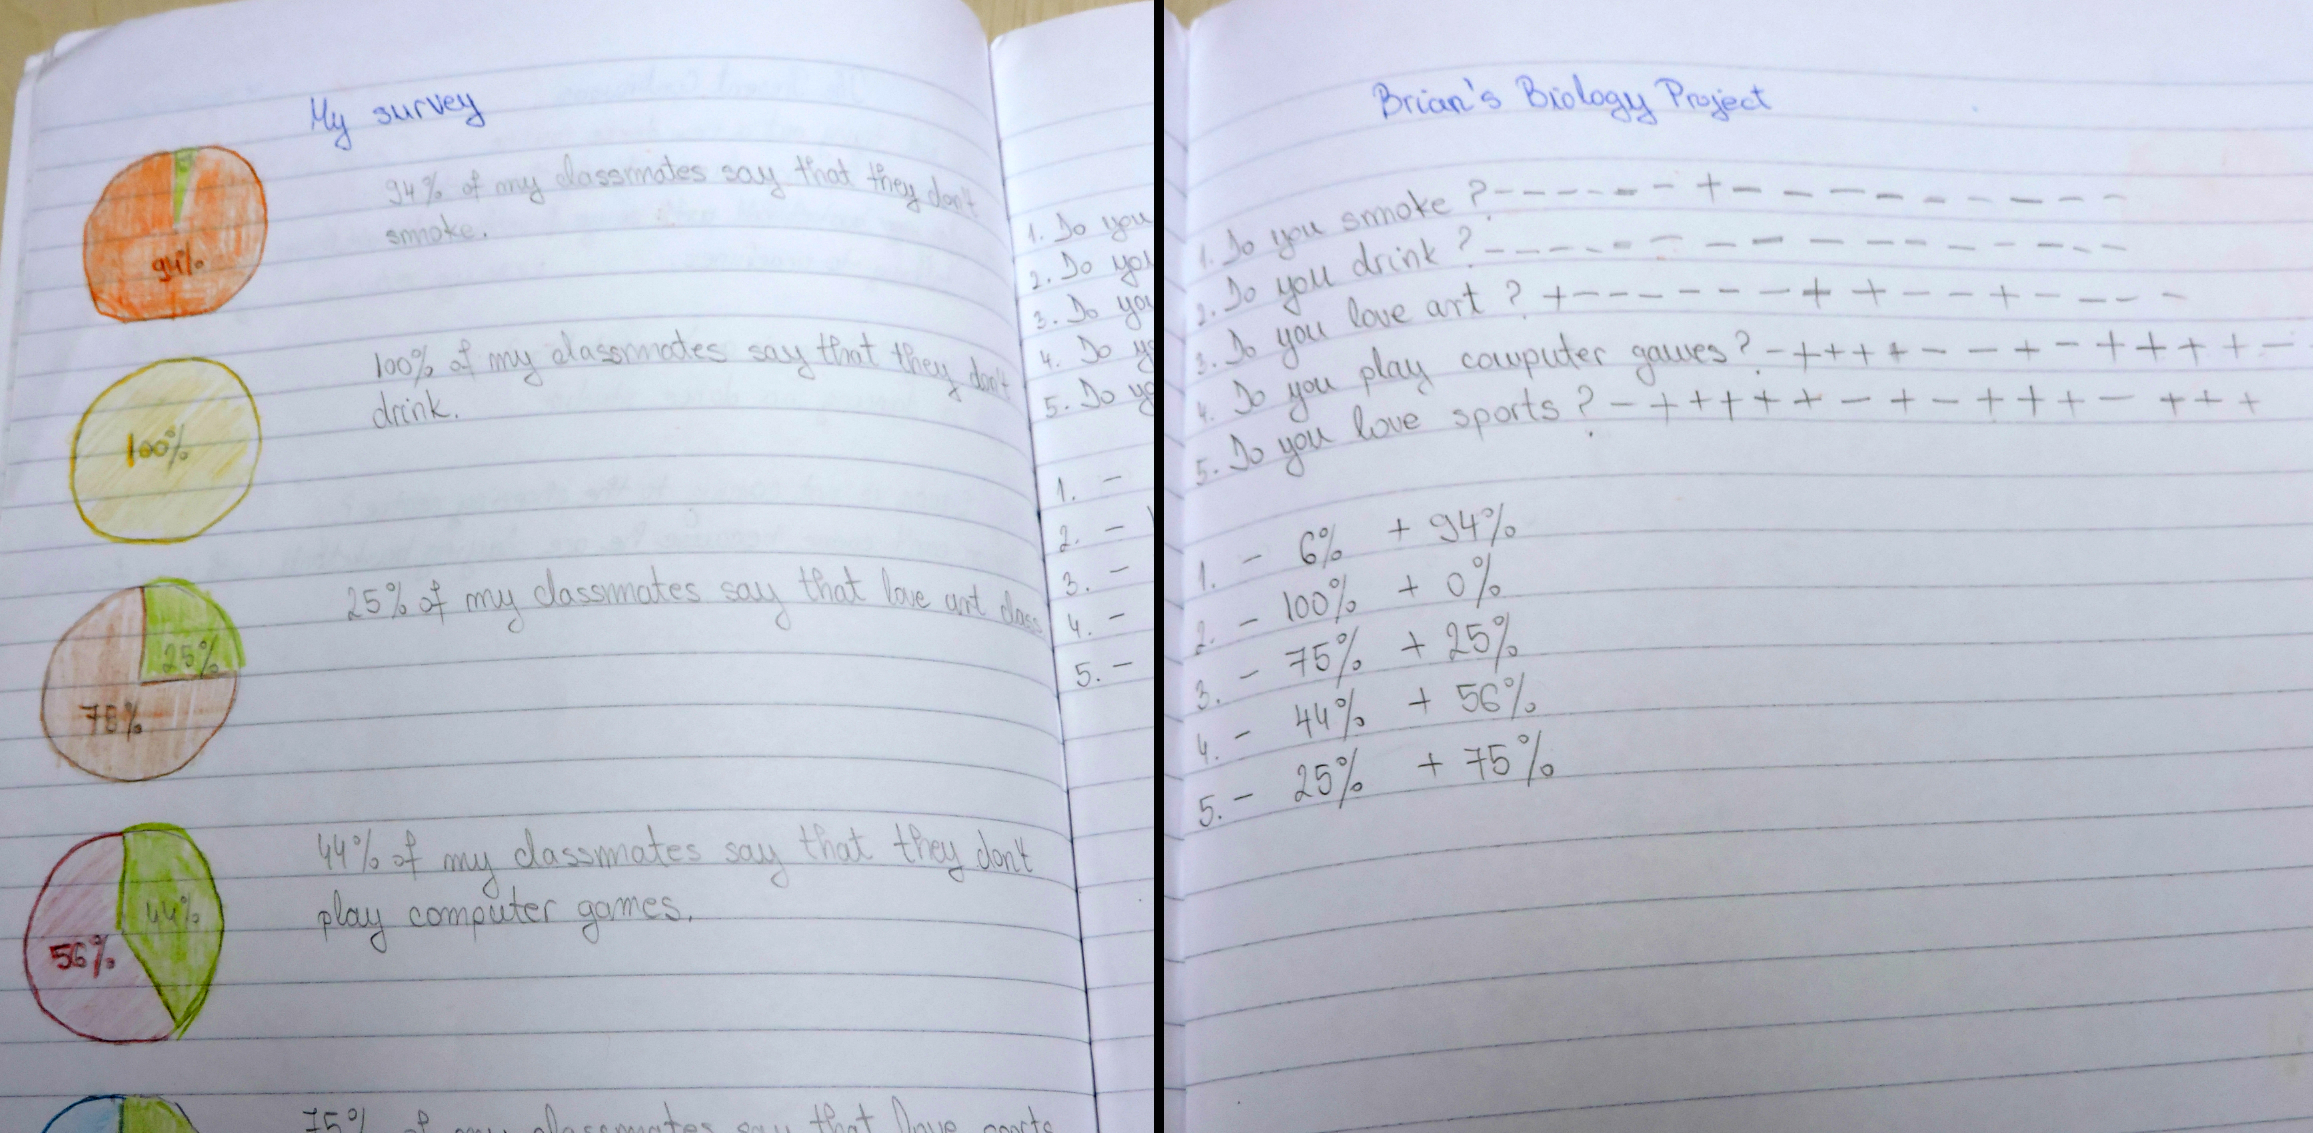 My survey
94% of my classmates say that they don't
smoke.
94%
100% of my classmates say that they don't
drink.
100%
25% of my classmates say that love art class
25%
75%
44% of my classmates say that they don't
play computer games.
44%
56%
75% of my classmates say that love sports
1. Do you
2. Do you
3. Do you
4. Do y
5. Do yo
1. -
2. -
3. -
4. -
5. -
Brian's Biology Project
1. Do you smoke? - - - - - - - + - - - - - - - -
2. Do you drink? - - - - - - - - - - - - - - - -
3. Do you love art? + - - - - - - + + - - + - - - -
4. Do you play computer games? - + + + + - - + - + + + + -
5. Do you love sports? - + + + + + - + - + + + - + + +
1. - 6% + 94%
2. - 100% + 0%
3. - 75% + 25%
4. - 44% + 56%
5. - 25% + 75%